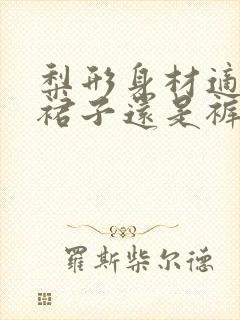 梨形身材適
裙子還是褲
羅斯柴尔德